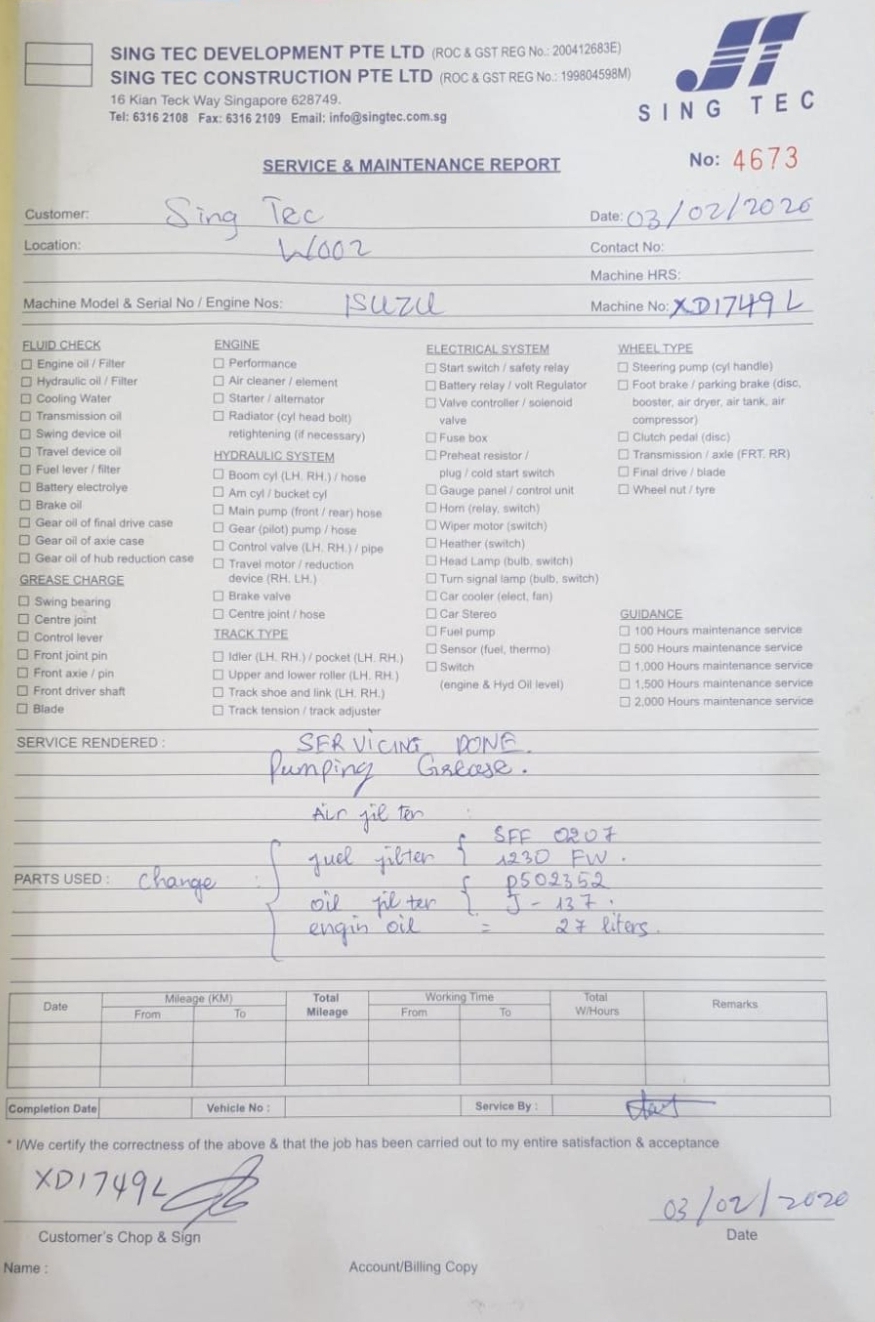 SING TEC DEVELOPMENT PTE LTD (ROC & GST REG No.: 200412683E)
SING TEC CONSTRUCTION PTE LTD (ROC & GST REG No.: 199804598M)
16 Kian Teck Way Singapore 628749.
Tel: 6316 2108 Fax: 6316 2109 Email: info@singtec.com.sg
SING TEC
SERVICE & MAINTENANCE REPORT
No: 4673
Customer: Sing Tec
Date: 03/02/2020
Location: W002
Contact No:
Machine HRS:
Machine Model & Serial No / Engine Nos: ISUZU
Machine No: XD1749L
FLUID CHECK
Engine oil / Filter
Hydraulic oil / Filter
Cooling Water
Transmission oil
Swing device oil
Travel device oil
Fuel lever / filter
Battery electrolye
Brake oil
Gear oil of final drive case
Gear oil of axie case
Gear oil of hub reduction case
GREASE CHARGE
Swing bearing
Centre joint
Control lever
Front joint pin
Front axie / pin
Front driver shaft
Blade
ENGINE
Performance
Air cleaner / element
Starter / alternator
Radiator (cyl head bolt)
retightening (if necessary)
HYDRAULIC SYSTEM
Boom cyl (LH. RH.) / hose
Am cyl / bucket cyl
Main pump (front / rear) hose
Gear (pilot) pump / hose
Control valve (LH. RH.) / pipe
Travel motor / reduction
device (RH. LH.)
Brake valve
Centre joint / hose
TRACK TYPE
Idler (LH. RH.) / pocket (LH. RH.)
Upper and lower roller (LH. RH.)
Track shoe and link (LH. RH.)
Track tension / track adjuster
ELECTRICAL SYSTEM
Start switch / safety relay
Battery relay / volt Regulator
Valve controller / solenoid
valve
Fuse box
Preheat resistor /
plug / cold start switch
Gauge panel / control unit
Horn (relay, switch)
Wiper motor (switch)
Heather (switch)
Head Lamp (bulb, switch)
Turn signal lamp (bulb, switch)
Car cooler (elect, fan)
Car Stereo
Fuel pump
Sensor (fuel, thermo)
Switch
(engine & Hyd Oil level)
WHEEL TYPE
Steering pump (cyl handle)
Foot brake / parking brake (disc,
booster, air dryer, air tank, air
compressor)
Clutch pedal (disc)
Transmission / axle (FRT. RR)
Final drive / blade
Wheel nut / tyre
GUIDANCE
100 Hours maintenance service
500 Hours maintenance service
1,000 Hours maintenance service
1,500 Hours maintenance service
2,000 Hours maintenance service
SERVICE RENDERED : SERVICING DONE.
Pumping Grease.
Air filter :
SFF 0207
fuel filter { 1230 FW.
PARTS USED : Change : { P502352
oil filter { J-137.
engin oil = 27 liters.
Date
Mileage (KM)
From
To
Total
Mileage
Working Time
From
To
Total
W/Hours
Remarks
Completion Date
Vehicle No :
Service By :
* I/We certify the correctness of the above & that the job has been carried out to my entire satisfaction & acceptance
XD1749L
03/02/2020
Customer's Chop & Sign
Date
Name :
Account/Billing Copy